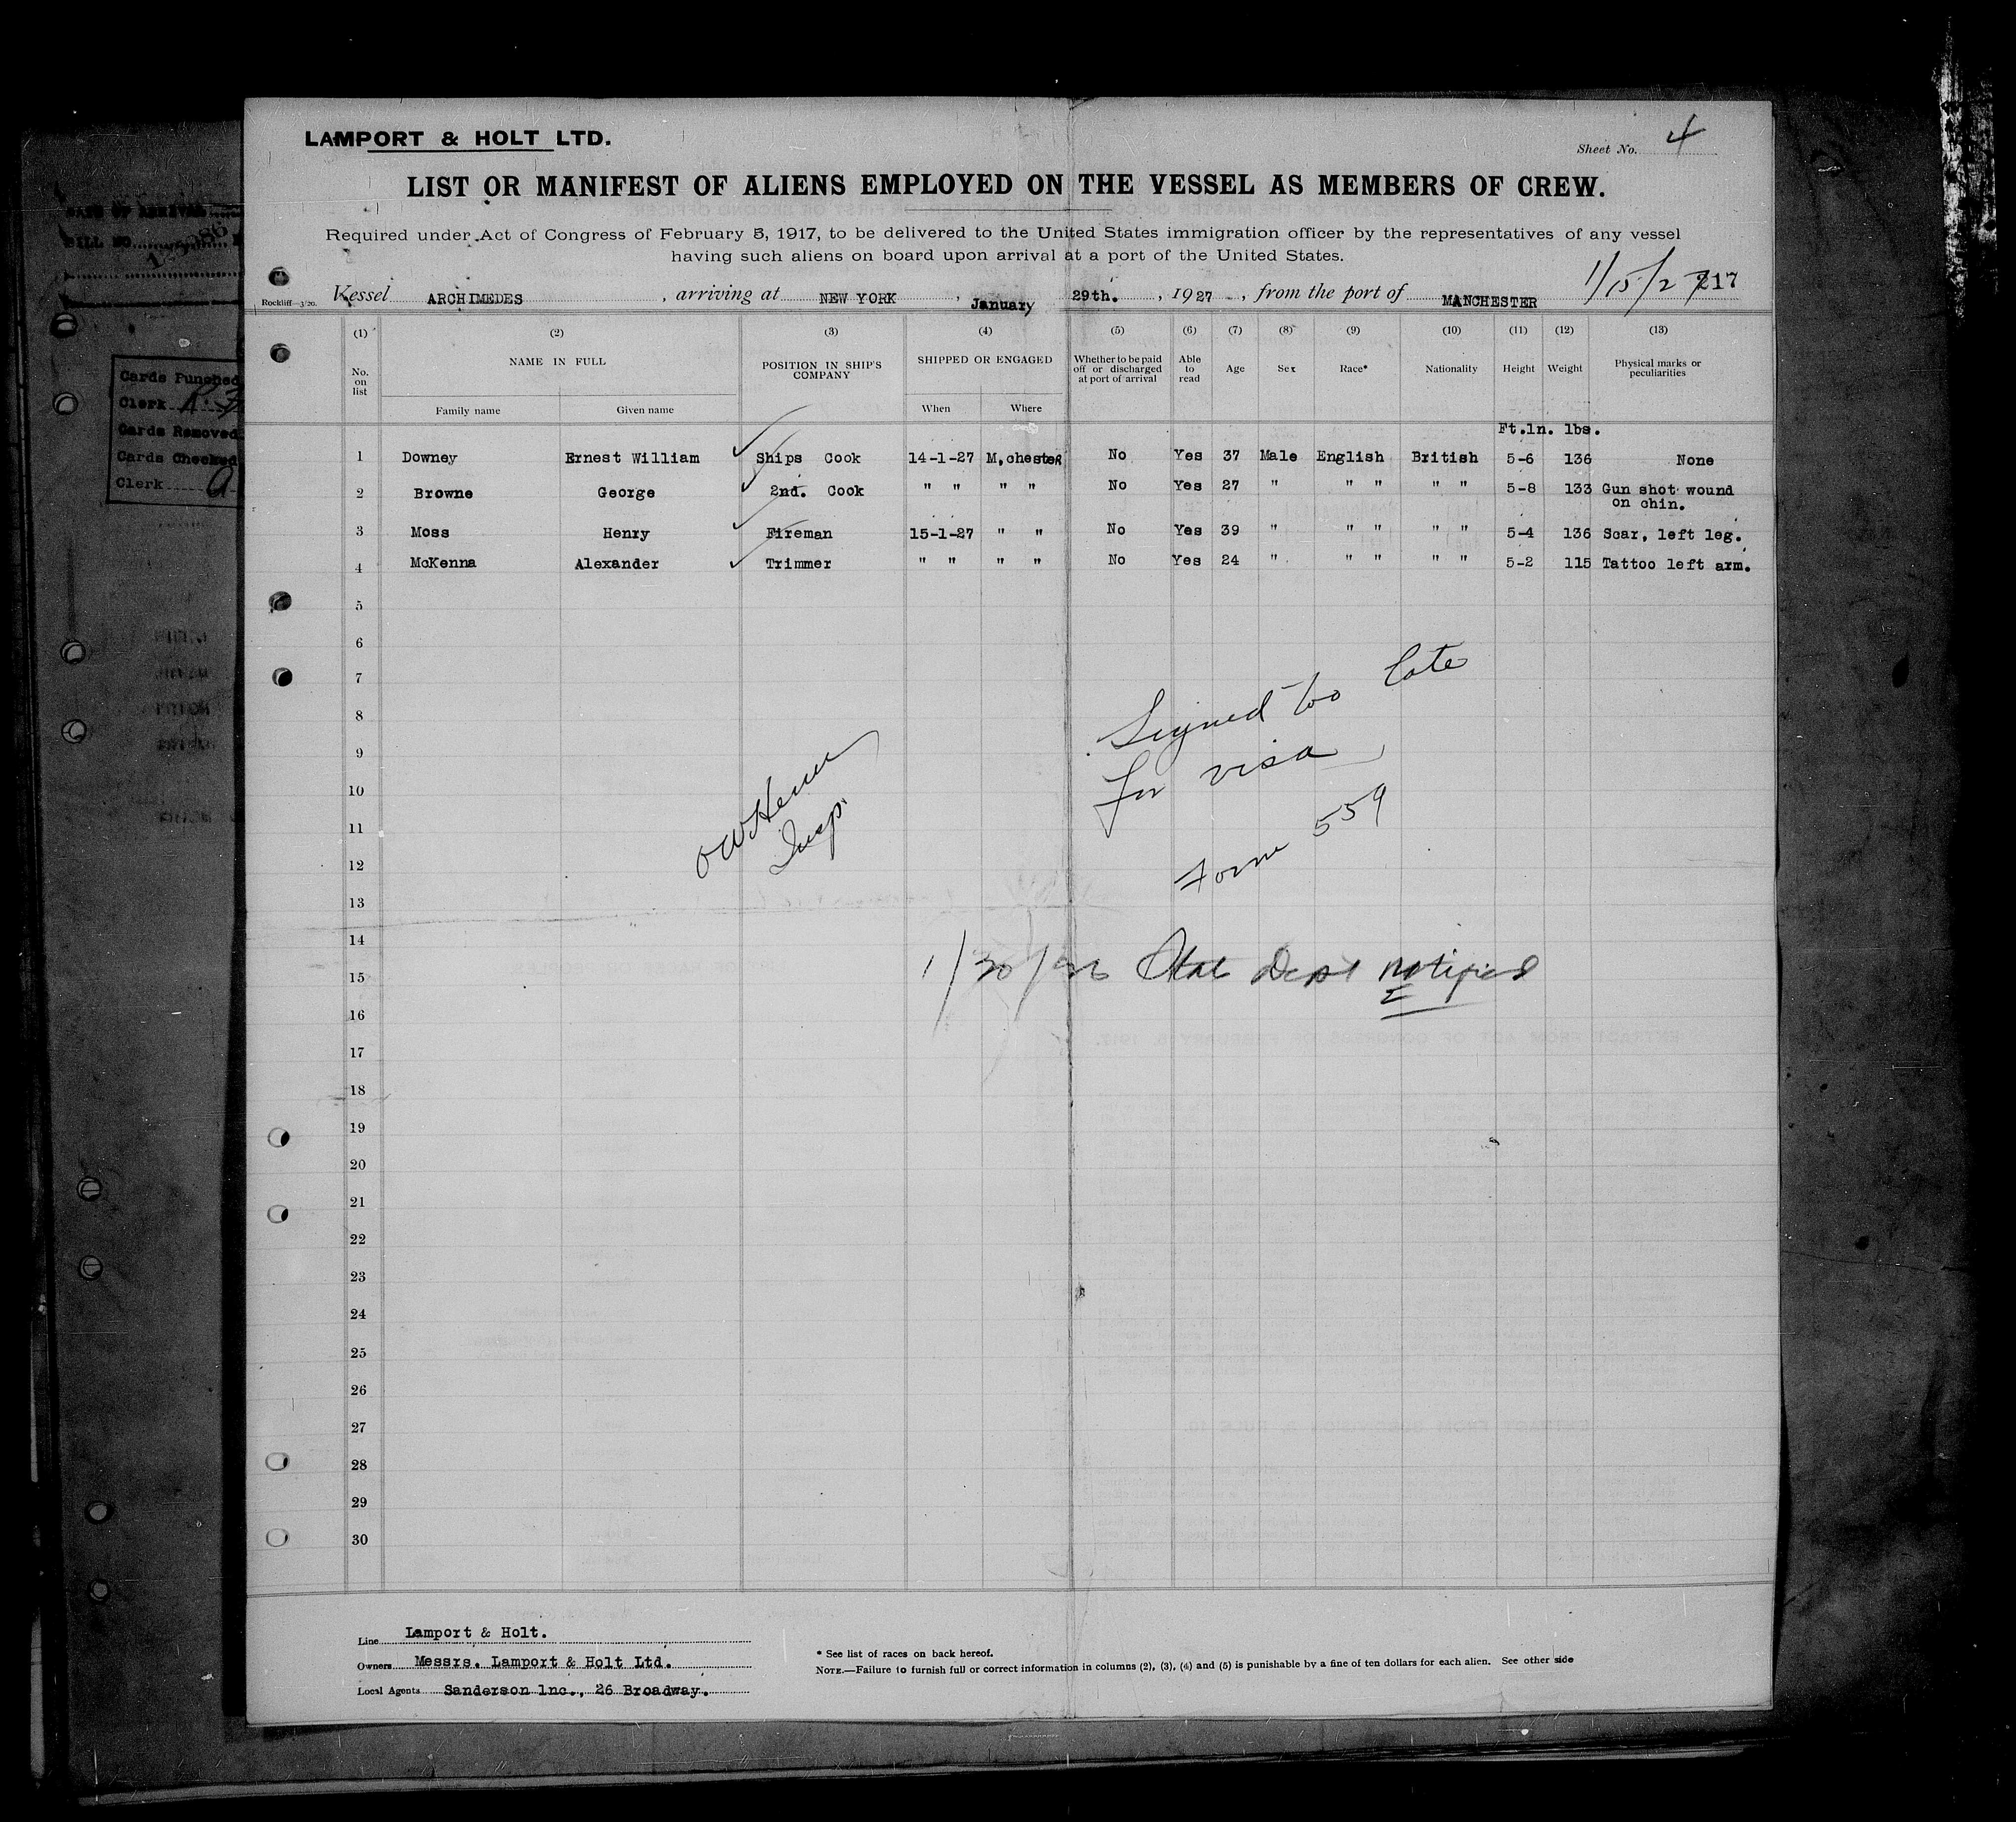 LAMPORT & HOLT LTD.
Sheet No. 4
LIST OR MANIFEST OF ALIENS EMPLOYED ON THE VESSEL AS MEMBERS OF CREW.
Required under Act of Congress of February 5, 1917, to be delivered to the United States immigration officer by the representatives of any vessel
having such aliens on board upon arrival at a port of the United States.
Rockliff—3/20. Vessel ARCHIMEDES, arriving at NEW YORK, January 29th., 1927, from the port of MANCHESTER 1/15/27 217
(1) (2) (3) (4) (5) (6) (7) (8) (9) (10) (11) (12) (13)
No. on list NAME IN FULL POSITION IN SHIP'S COMPANY SHIPPED OR ENGAGED Whether to be paid off or discharged at port of arrival Able to read Age Sex Race* Nationality Height Weight Physical marks or peculiarities
Family name Given name When Where
Ft.in. lbs.
1 Downey Ernest William Ships Cook 14-1-27 M,chester No Yes 37 Male English British 5-6 136 None
2 Browne George 2nd. Cook " " " " No Yes 27 " " " " " 5-8 133 Gun shot wound
on chin.
3 Moss Henry Fireman 15-1-27 " " No Yes 39 " " " " " 5-4 136 Scar, left leg.
4 McKenna Alexander Trimmer " " " " No Yes 24 " " " " " 5-2 115 Tattoo left arm.
5
6
7
8
9
10
11
12
13
14
15
16
17
18
19
20
21
22
23
24
25
26
27
28
29
30
Signed too late
for visa
Form 559
Insp.
1/30/26 State Dept notified
Line Lamport & Holt.
Owners Messrs. Lamport & Holt Ltd.
Local Agents Sanderson lnc., 26 Broadway.
* See list of races on back hereof.
NOTE.—Failure to furnish full or correct information in columns (2), (3), (4) and (5) is punishable by a fine of ten dollars for each alien. See other side
DATE OF ARRIVAL
BILL NO.
Cards Punched
Clerk
Cards Removed
Cards Checked
Clerk